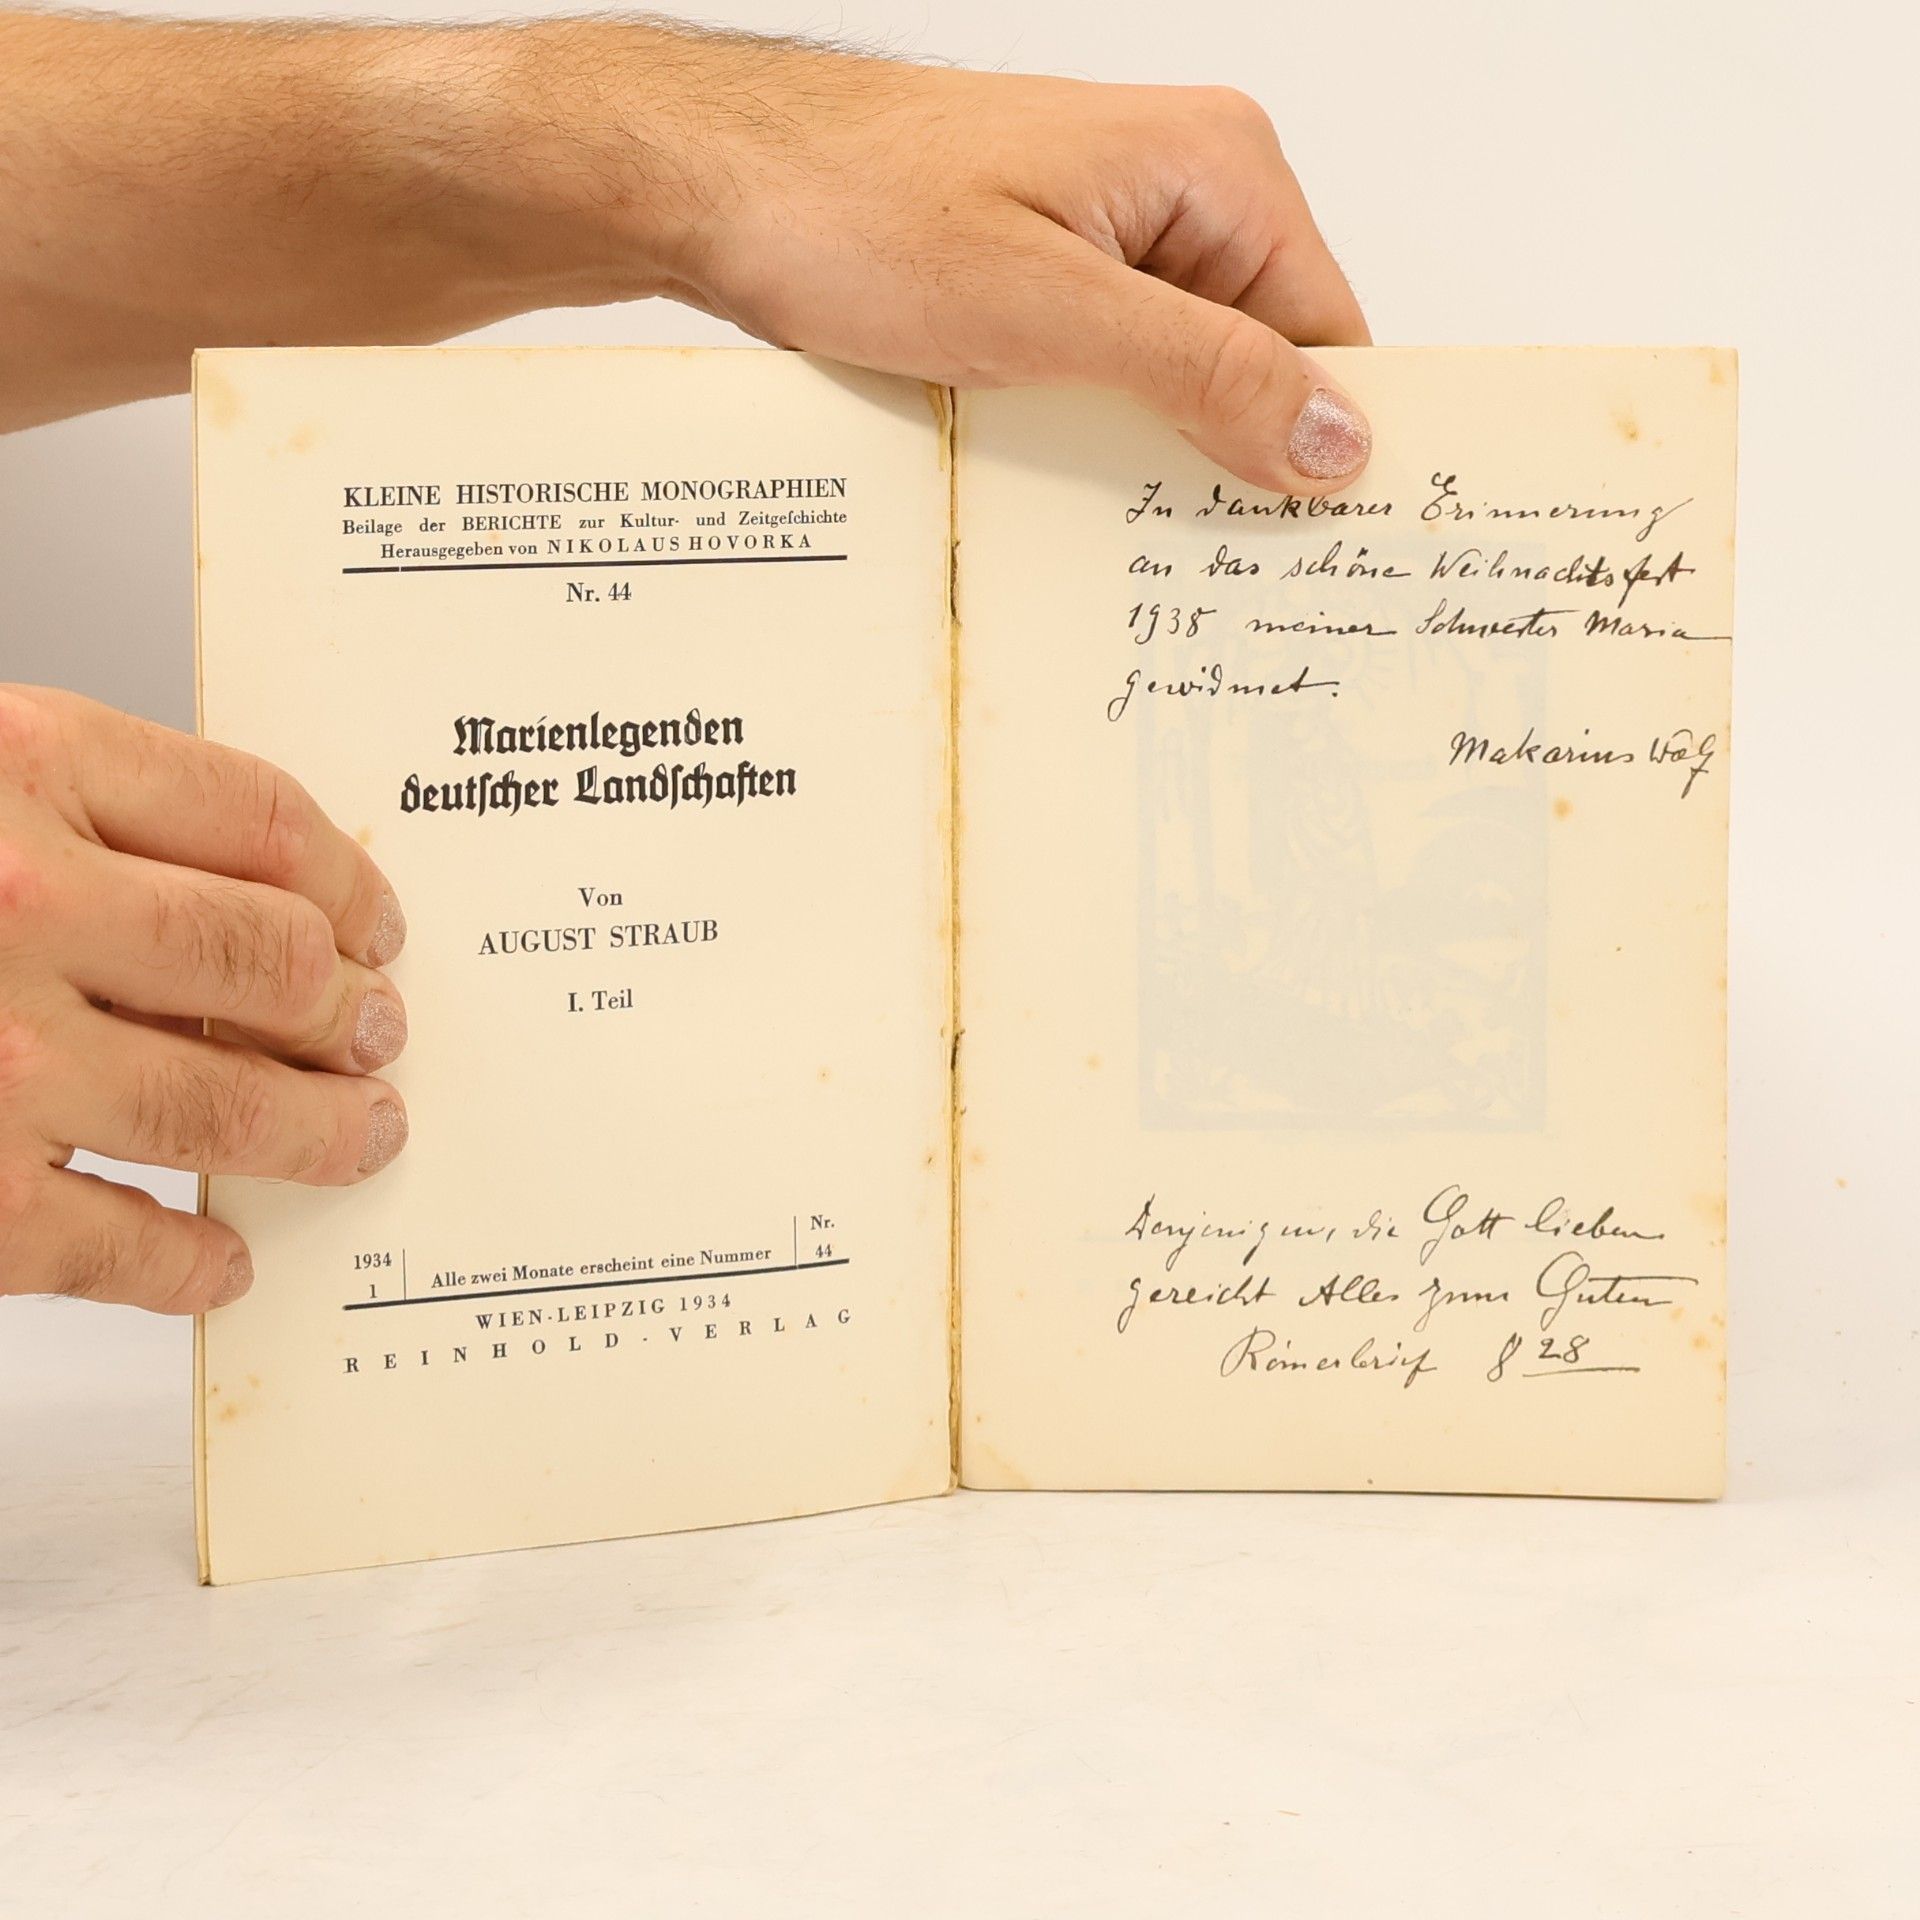 KLEINE HISTORISCHE MONOGRAPHIEN
Beilage der BERICHTE zur Kultur- und Zeitgeſchichte
Herausgegeben von NIKOLAUS HOVORKA
Nr. 44
Marienlegenden
deutſcher Landſchaften
Von
AUGUST STRAUB
I. Teil
1934
1
Alle zwei Monate erscheint eine Nummer
Nr.
44
WIEN-LEIPZIG 1934
REINHOLD-VERLAG
In dankbarer Erinnerung
an das schöne Weihnachtsfest
1938 meiner Schwester Maria
gewidmet.
Makarius
Denjenigen, die Gott lieben
gereicht Alles zum Guten
Römerbrief 8 28